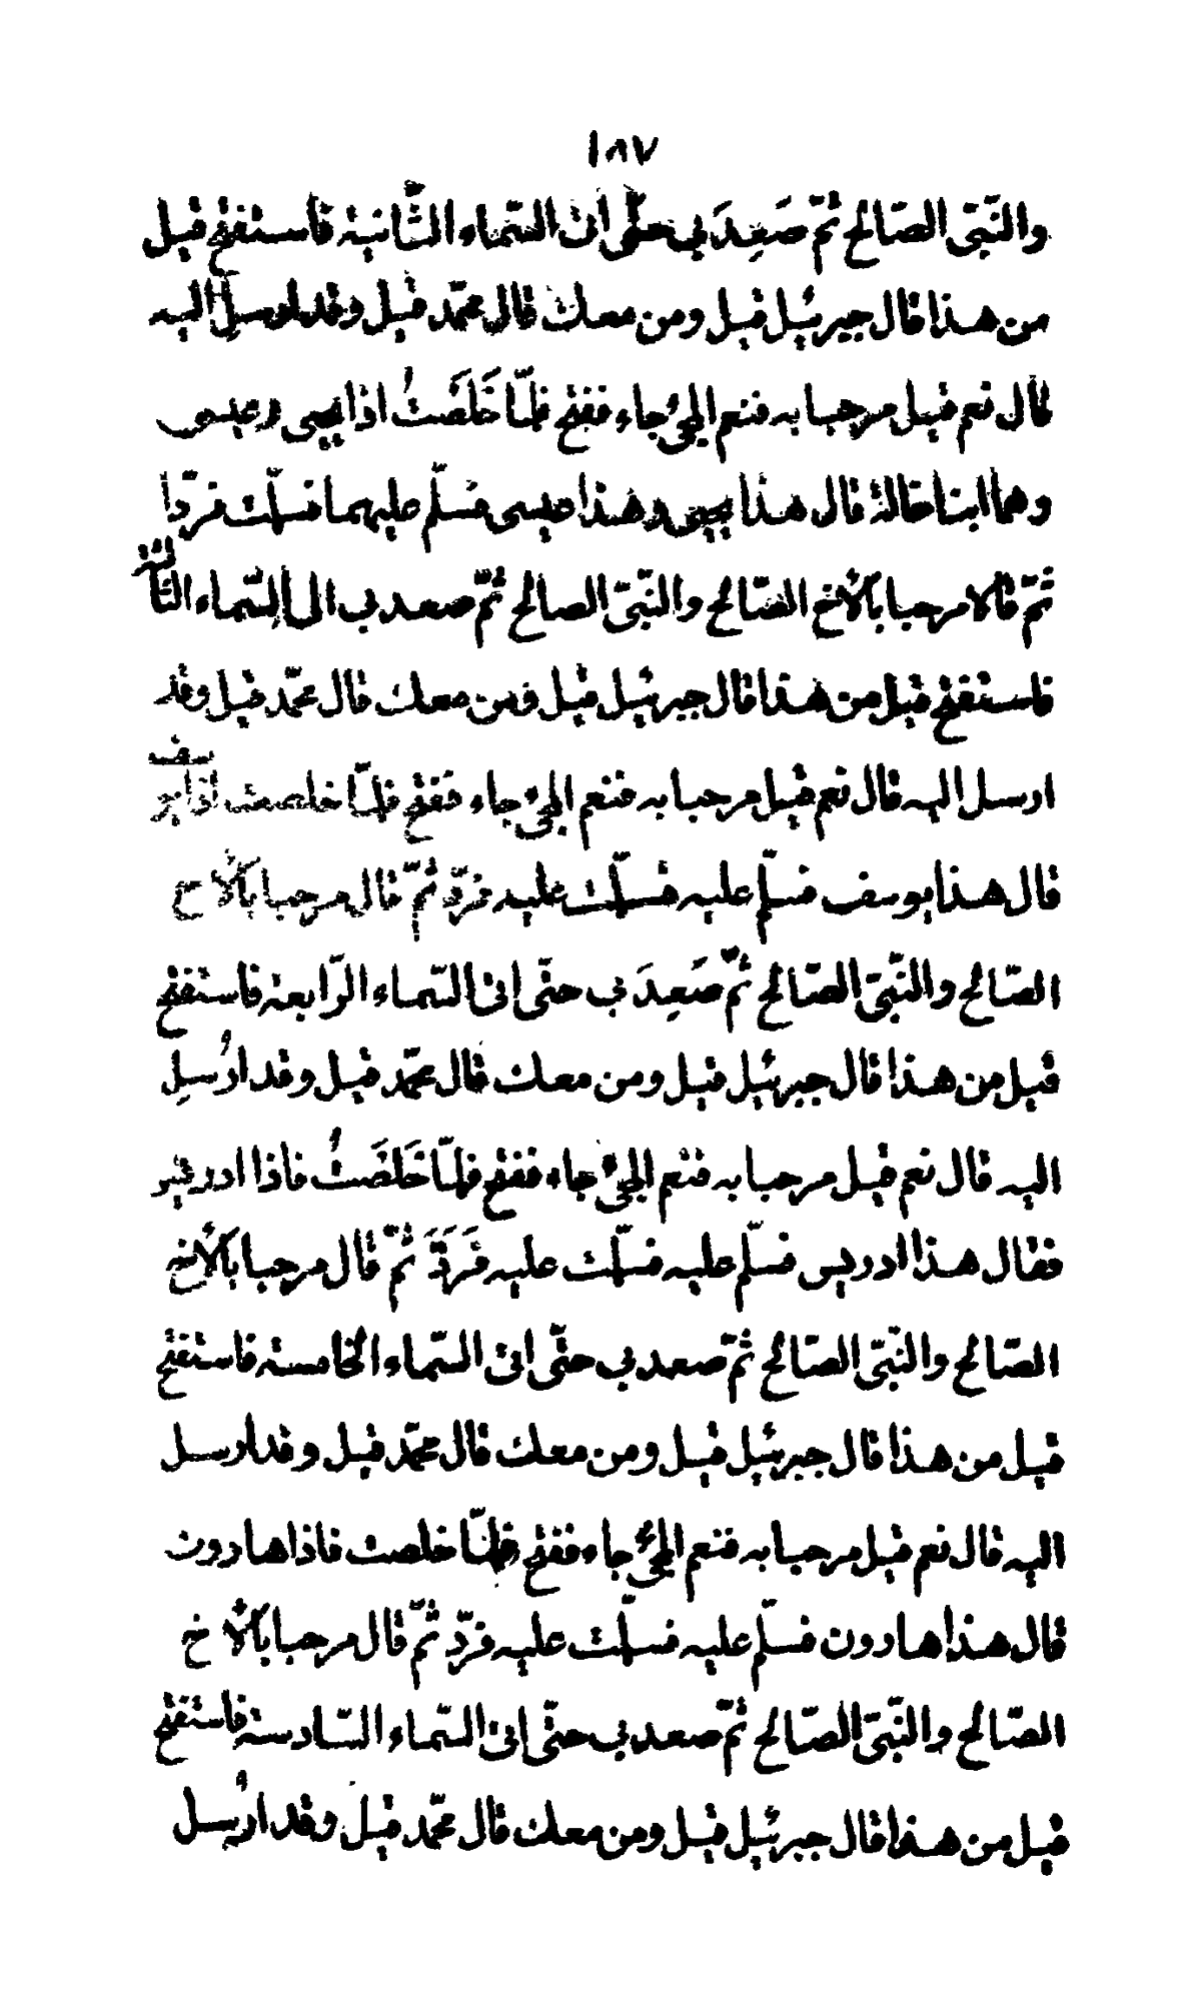 ١٨٧
والنّبىّ الصّالح ثمّ صَعِدَ بي حتّى اتى السّماء الثّانية فاستفتح قيل
من هذا قال جبرئيل قيل ومن معك قال محمّد قيل وقد ارسل اليه
قال نعم قيل مرحبا به فنعم المجئ جاء ففتح فلمّا خَلَصَتُ اذا يحيى وعيسى
وهما ابنا خالة قال هذا يحيى وهذا عيسى فسلّم عليهما فسلّمت فردّا
ثمّ قالا مرحبا بالأخ الصّالح والنّبىّ الصالح ثُمّ صعد بي الى السّماء الثالثة
فاستفتح قيل من هذا قال جبرئيل قيل ومن معك قال محمّد قيل وقد
ارسل اليه قال نعم قيل مرحبا به فنعم المجئ جاء ففتح فلمّا خلصت اذا يوسف
قال هذا يوسف فسلّم عليه فسلّمت عليه فردّ ثمّ قال مرحبا بالأخ
الصّالح والنّبىّ الصّالح ثمّ صَعِدَ بي حتّى اتى السّماء الرّابعة فاستفتح
قيل من هذا قال جبرئيل قيل ومن معك قال محمّد قيل وقد ارُسِل
اليه قال نعم قيل مرحبا به فنعم المجئ جاء ففتح فلمّا خَلَصَتُ فاذا ادريس
فقال هذا ادريس فسلّم عليه فسلّمت عليه فَرَدَّ ثمّ قال مرحبا بالأخ
الصّالح والنّبىّ الصّالح ثمّ صعد بي حتّى اتى السّماء الخامسة فاستفتح
قيل من هذا قال جبرئيل قيل ومن معك قال محمّد قيل وقد ارسل
اليه قال نعم قيل مرحبا به فنعم المجئ جاء ففتح فلمّا خلصت فاذا هارون
قال هذا هارون فسلّم عليه فسلّمت عليه فردّ ثمّ قال مرحبا بالأخ
الصّالح والنّبىّ الصّالح ثمّ صعد بي حتّى اتى السّماء السّادسة فاستفتح
قيل من هذا قال جبرئيل قيل ومن معك قال محمّد قيل وقد ارُسل